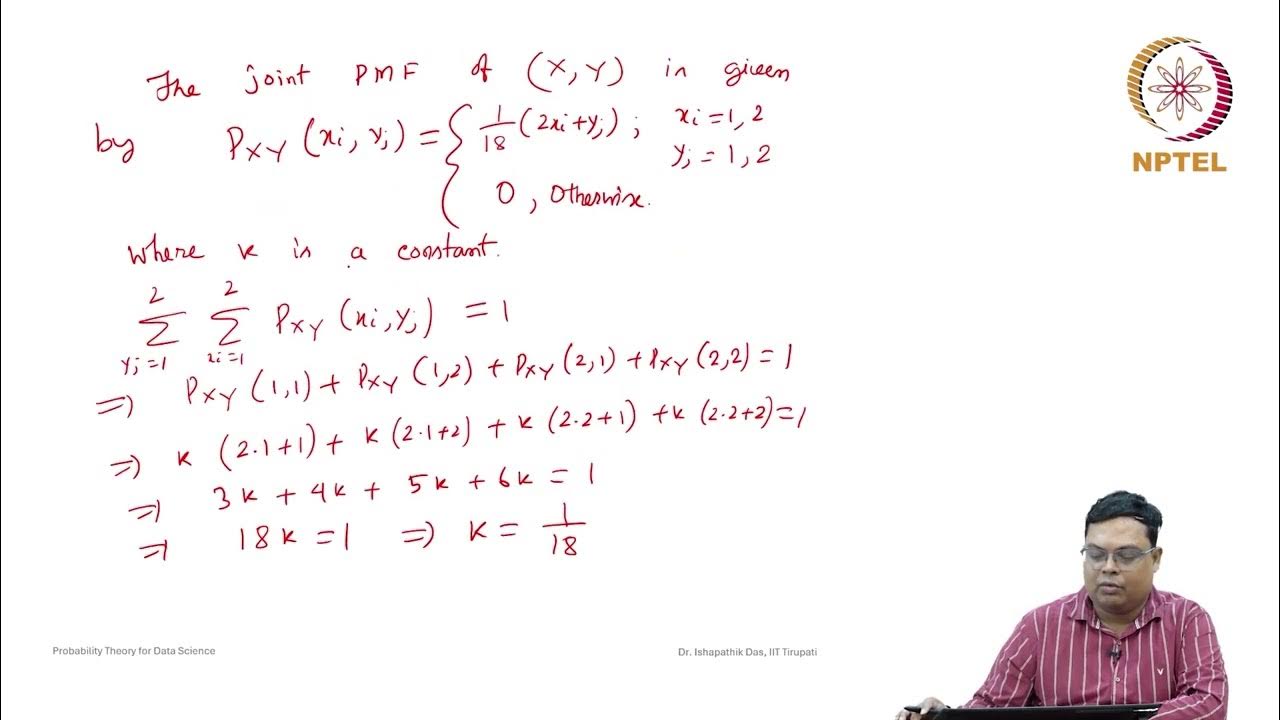 The joint PMF of (X, Y) is given
by P_XY (xi, yj) = { 1/18 (2xi + yj) ; xi = 1, 2
yj = 1, 2
0 , Otherwise.
NPTEL
Where k is a constant.
2 Σ yj=1 2 Σ xi=1 P_XY (xi, yj) = 1
=> P_XY (1,1) + P_XY (1,2) + P_XY (2,1) + P_XY (2,2) = 1
=> k (2.1+1) + k (2.1+2) + k (2.2+1) + k (2.2+2) = 1
=> 3k + 4k + 5k + 6k = 1
=> 18k = 1 => k = 1/18
Probability Theory for Data Science
Dr. Ishapathik Das, IIT Tirupati